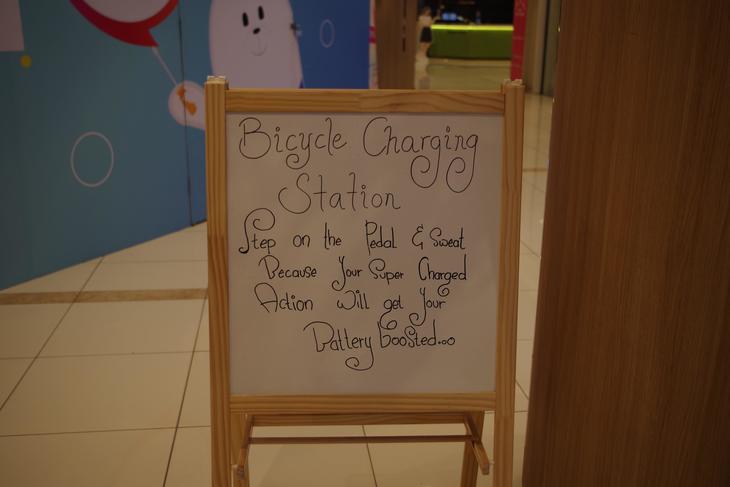 Bicycle Charging
Station
Step on the Pedal & Sweat
Because Your Super Charged
Action Will get Your
Battery boosted...